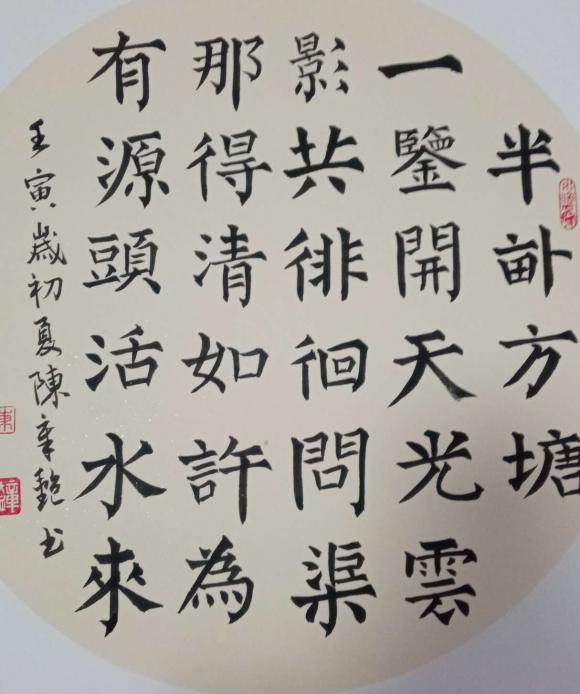 半畝方塘
一鑒開天光雲
影共徘徊問渠
那得清如許為
有源頭活水來
壬寅歲初夏陳章